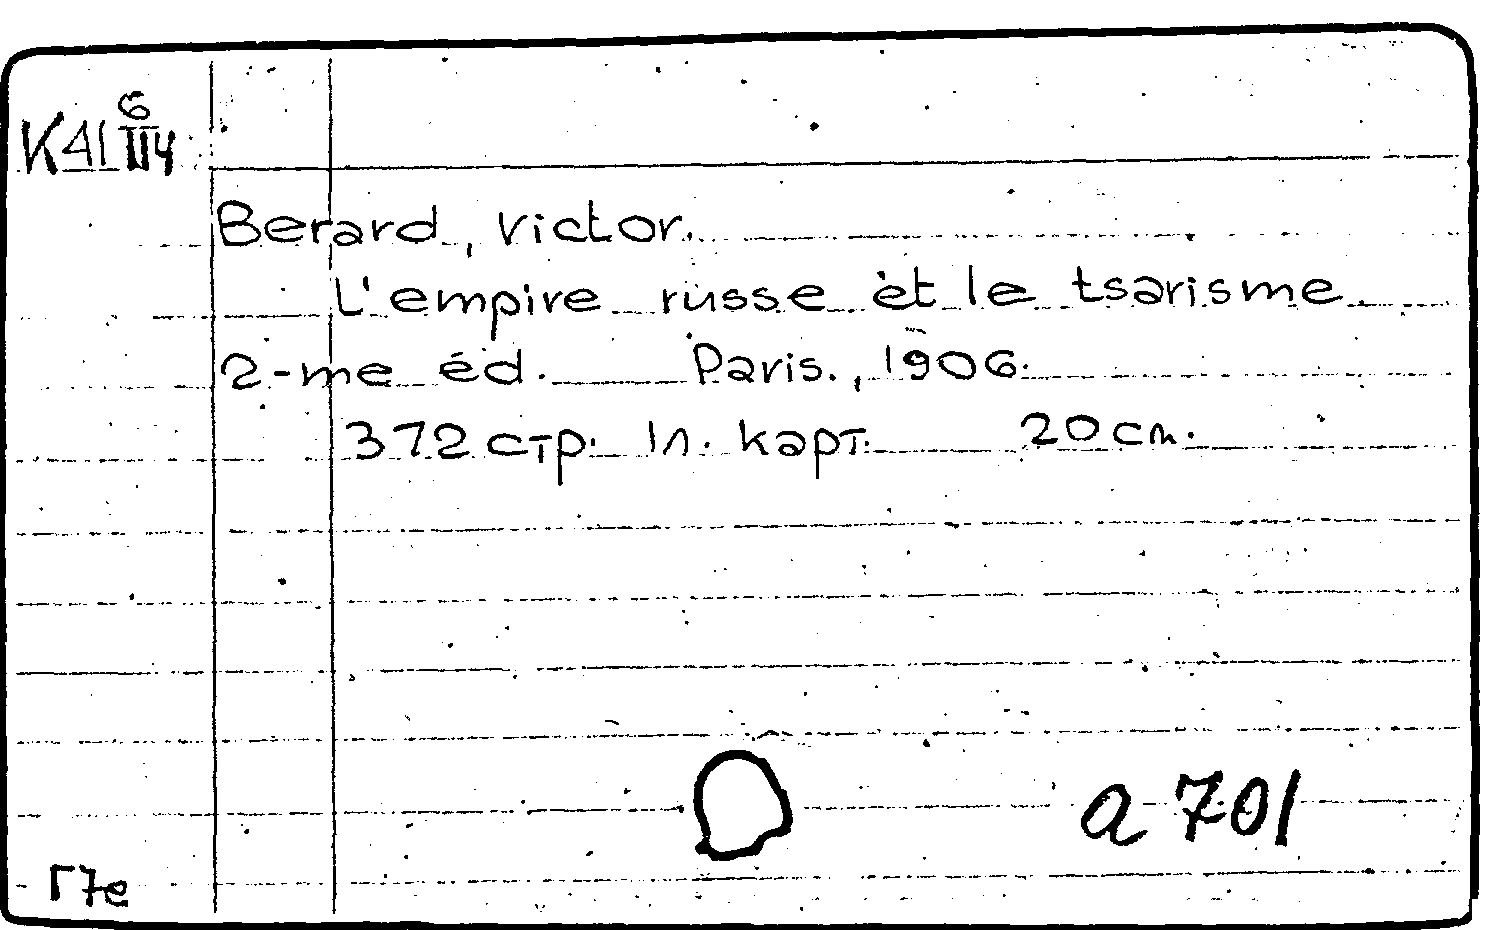 6
K41 II4
Berard, Victor.
L'empire russe et le tsarisme.
2-me éd. Paris., 1906.
372 стр. Іл. карт. 20 cm.
a 701
Г7е